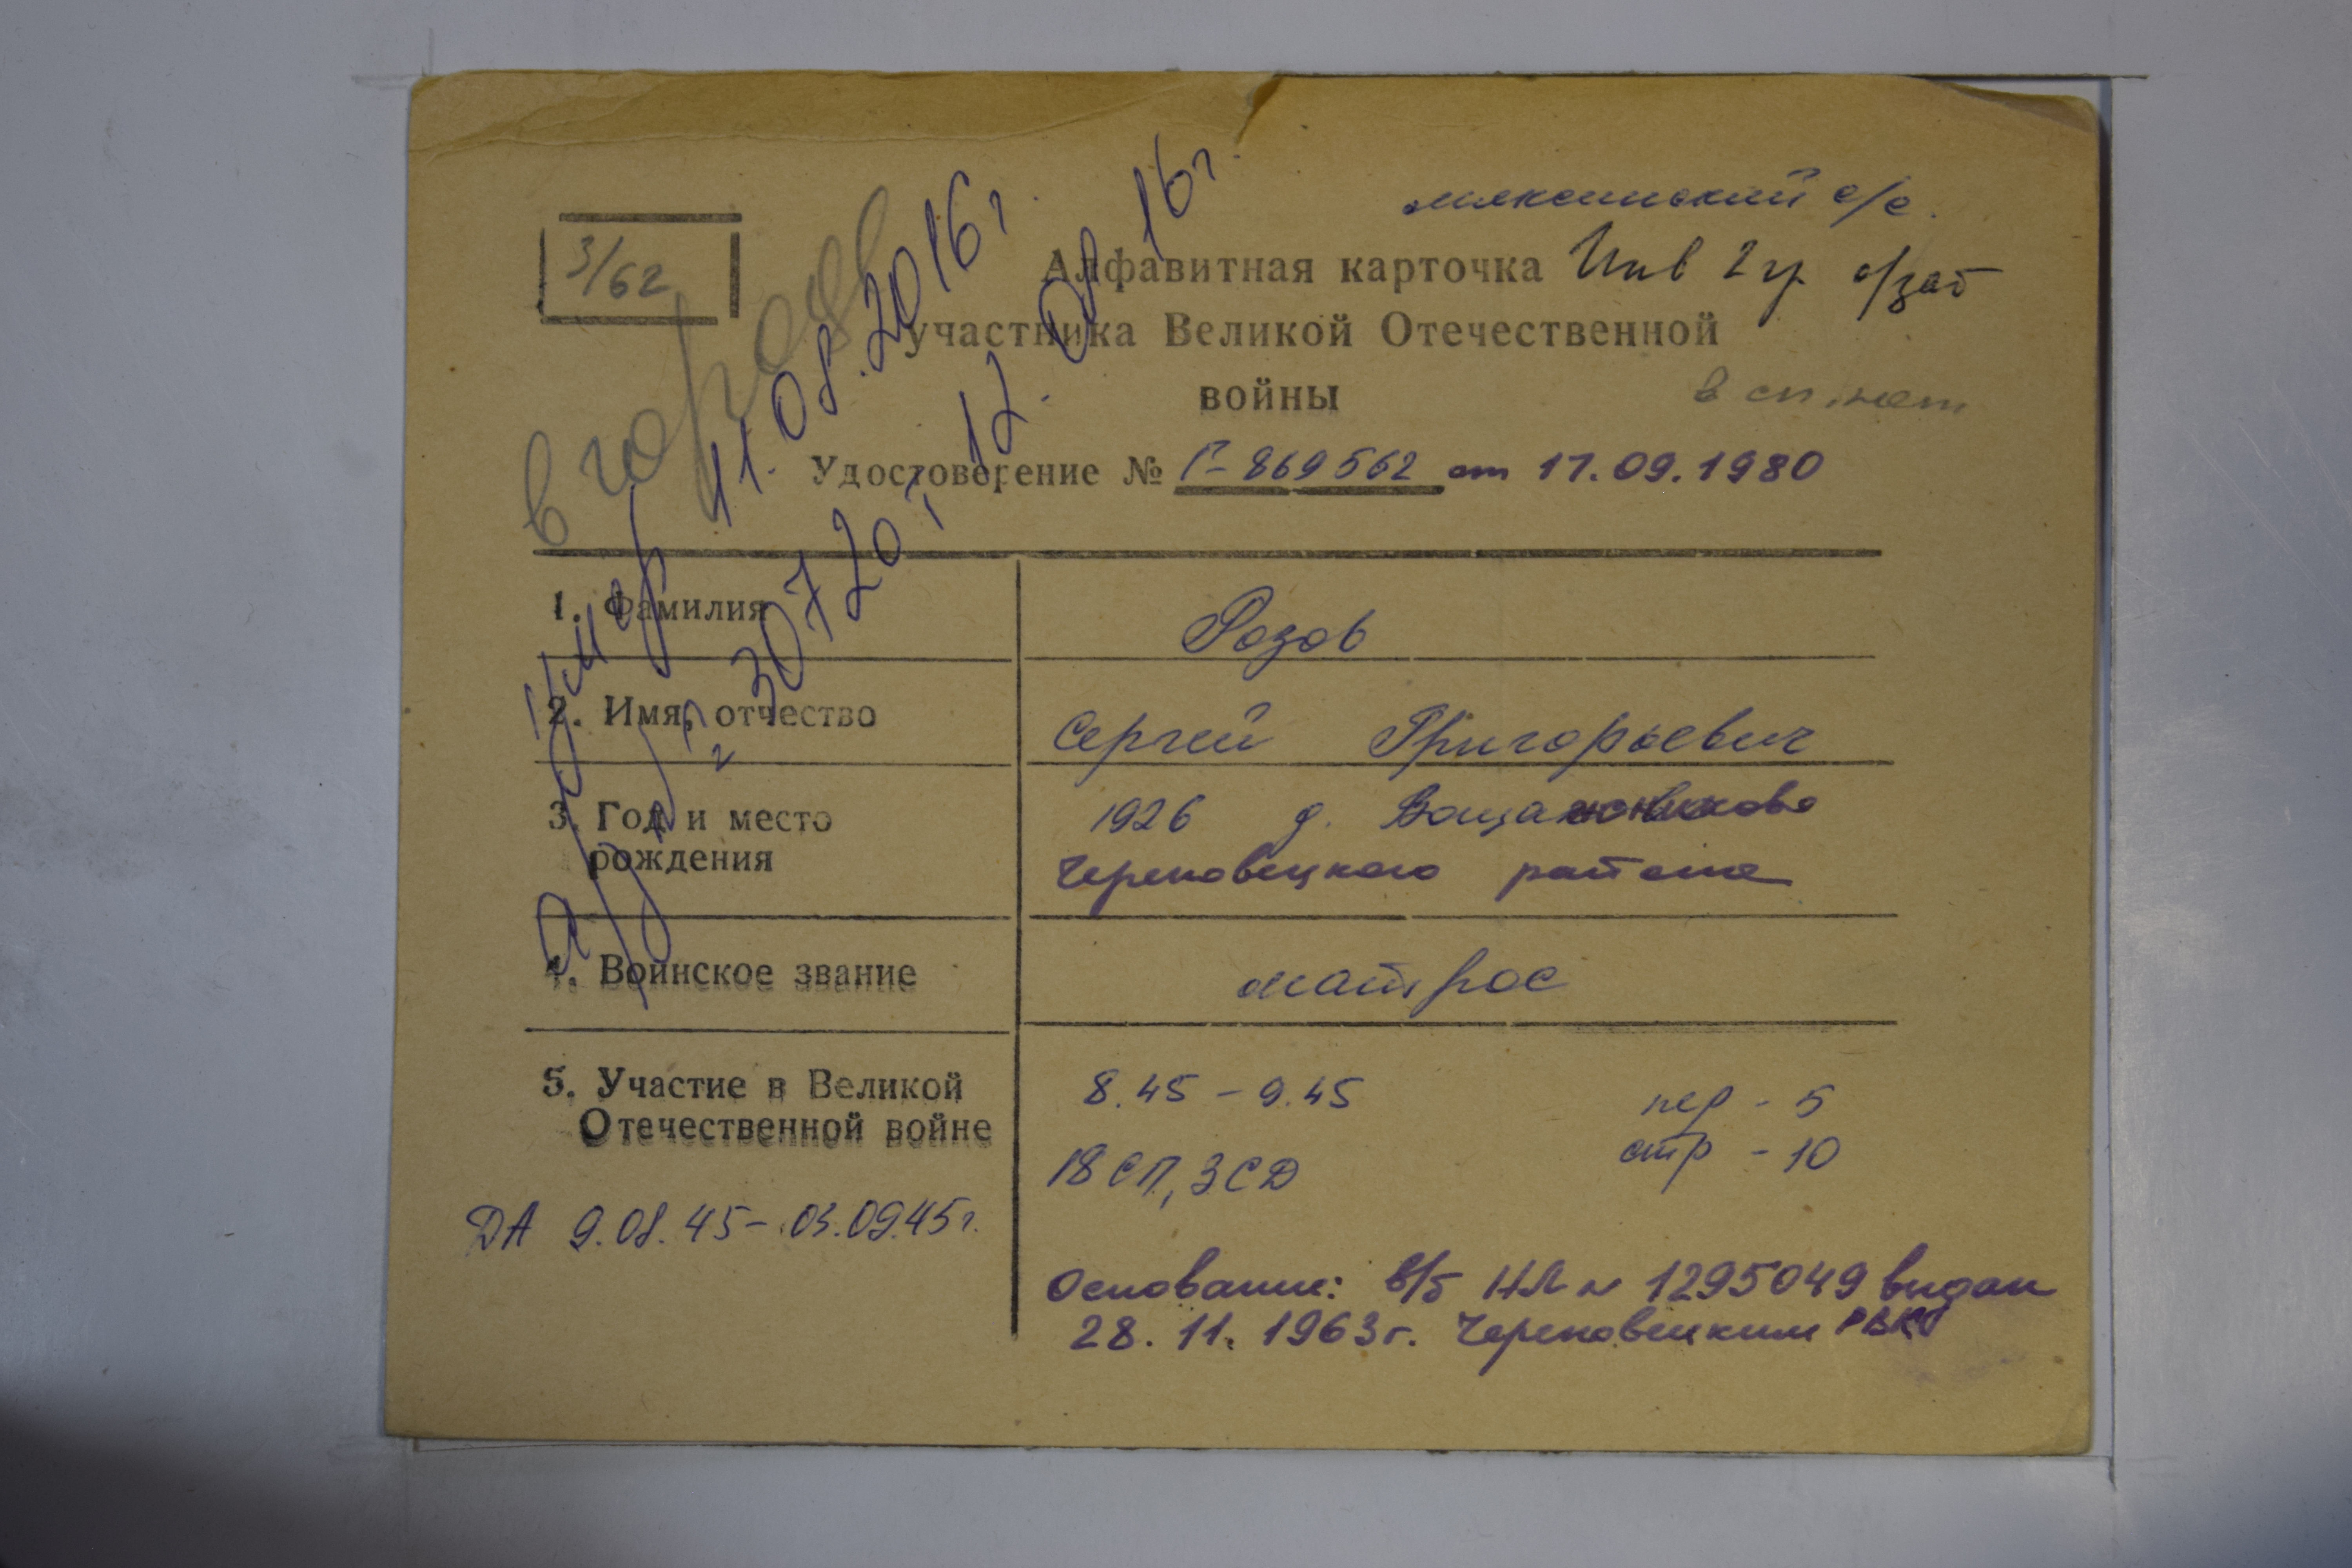 мяксинский с/с.
3/62
Алфавитная карточка Инв 2 гр о/заб
участника Великой Отечественной
войны
в сп. нет
в городе
Удостоверение № Г-869562 от 17.09.1980
умер 11.08.2016г.
12.08.16г.
1. Фамилия Розов
2. Имя, отчество Сергей Григорьевич
3. Год и место рождения 1926 д.
Череповецкого района
4. Воинское звание матрос
5. Участие в Великой Отечественной войне 8.45 - 9.45 пер - 5
18 СП, 3 СД стр - 10
ДА 9.08.45 - 03.09.45г.
Основание: в/б НЛ № 1295049 выдан
28.11.1963г. Череповецким РВК